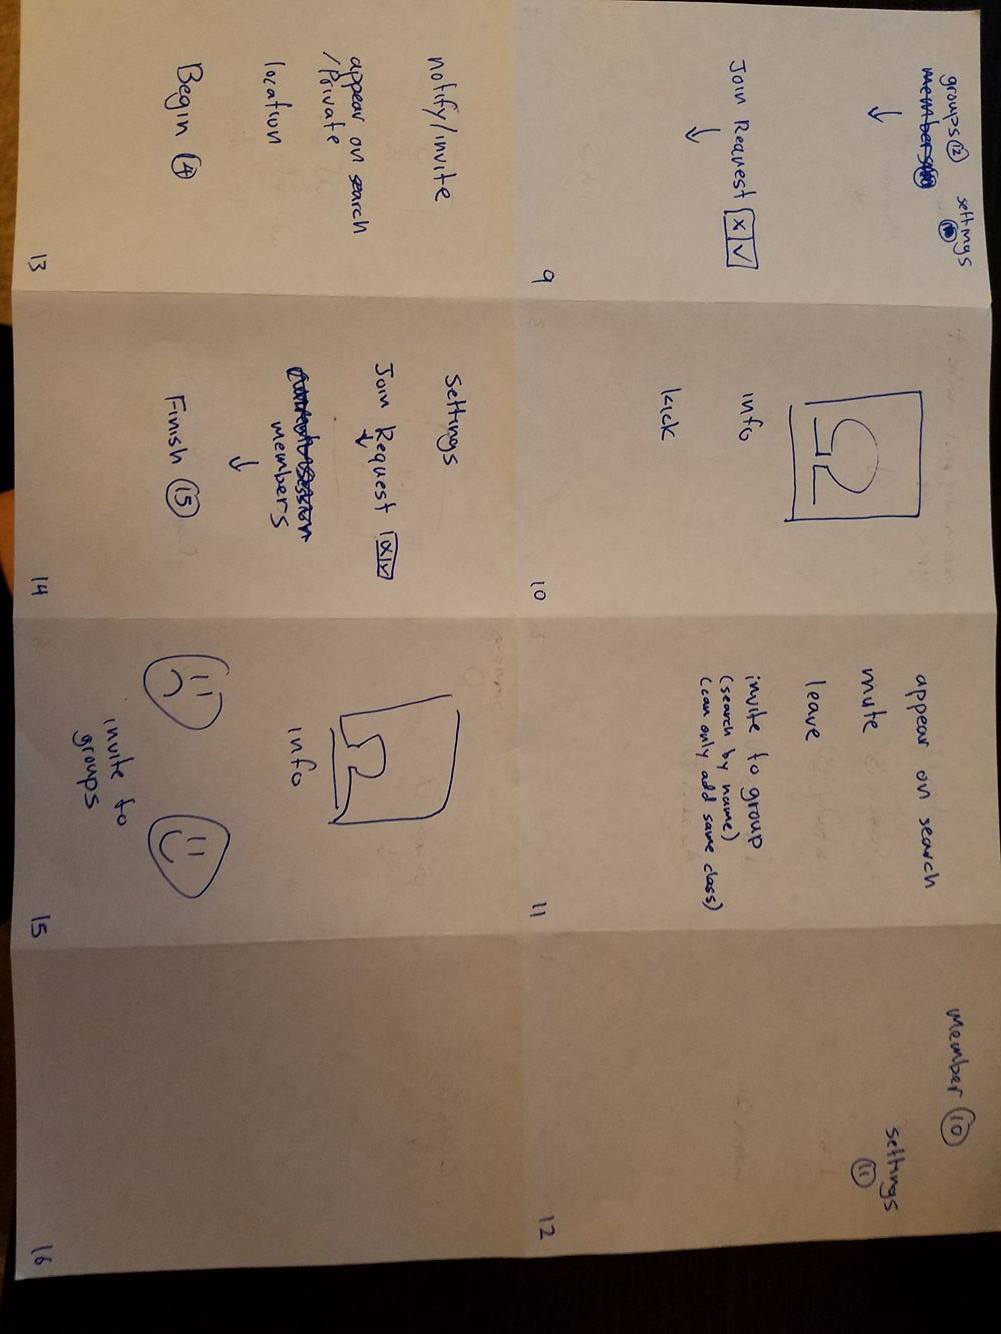 groups 12
settings
members
Join Request x ✓
9
info
kick
10
appear on search
mute
leave
invite to group
(search by name)
(can only add same class)
11
Member 10
settings
11
12
notify/invite
appear on search
/Private
location
Begin 14
13
Settings
Join Request x ✓
members
Finish 15
14
info
invite to
groups
15
16